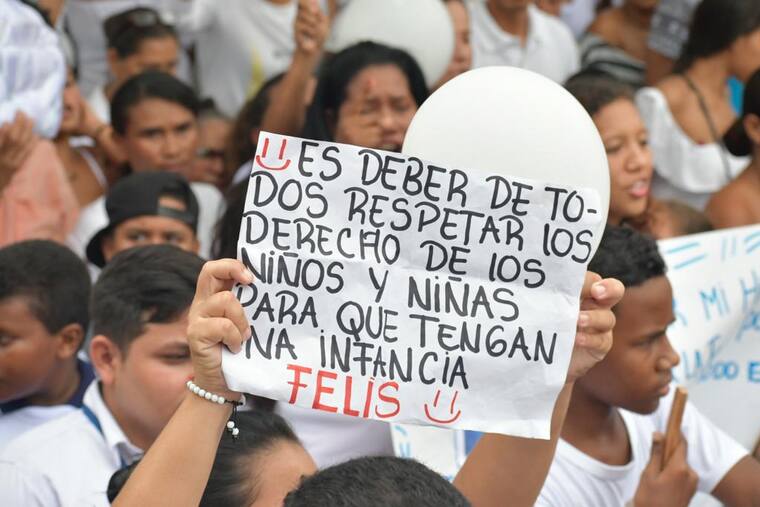 ES DEBER DE TO-
DOS RESPETAR lOS
DERECHO DE lOS
NIÑOS Y NIÑAS
PARA QUE TENGAN
NA INFANCIA
FELIS
MI